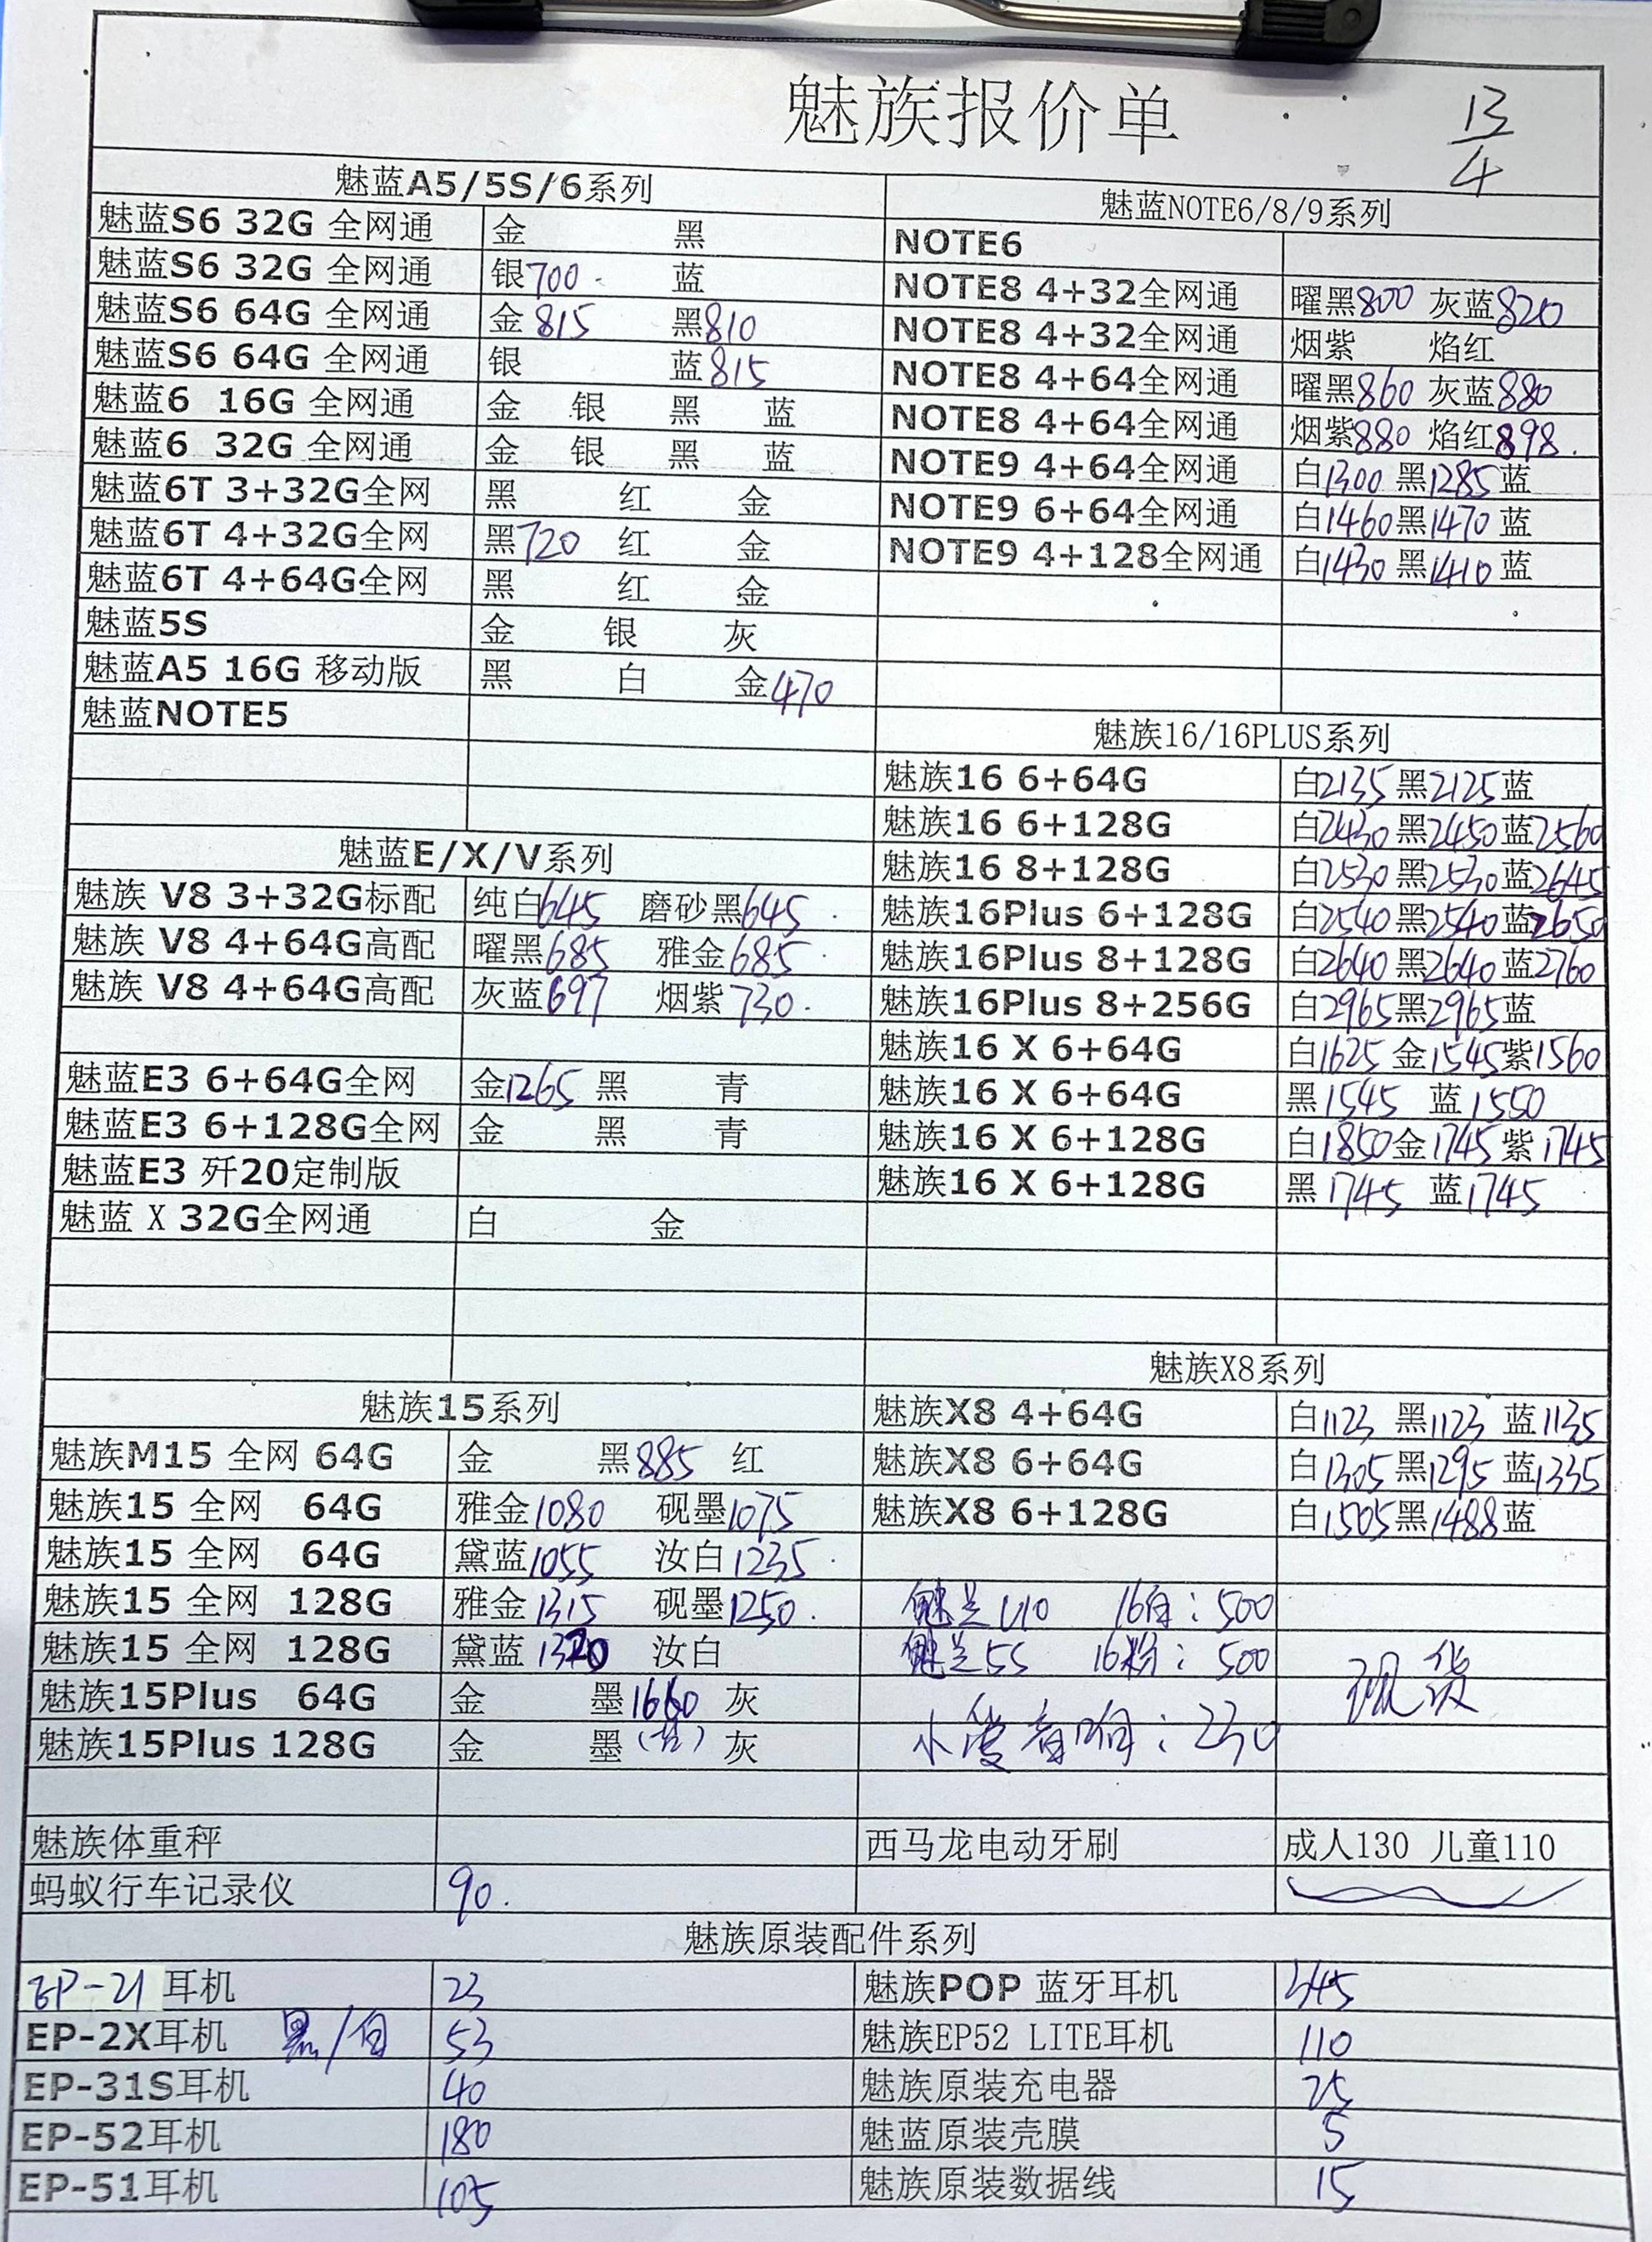 魅族报价单
13/4
魅蓝A5/5S/6系列
魅蓝S6 32G 全网通 金 黑
魅蓝S6 32G 全网通 银700 蓝
魅蓝S6 64G 全网通 金815 黑810
魅蓝S6 64G 全网通 银 蓝815
魅蓝6 16G 全网通 金 银 黑 蓝
魅蓝6 32G 全网通 金 银 黑 蓝
魅蓝6T 3+32G全网 黑 红 金
魅蓝6T 4+32G全网 黑720 红 金
魅蓝6T 4+64G全网 黑 红 金
魅蓝5S 金 银 灰
魅蓝A5 16G 移动版 黑 白 金470
魅蓝NOTE5
魅蓝E/X/V系列
魅族 V8 3+32G标配 纯白645 磨砂黑645
魅族 V8 4+64G高配 曜黑685 雅金685
魅族 V8 4+64G高配 灰蓝697 烟紫730
魅蓝E3 6+64G全网 金1265 黑 青
魅蓝E3 6+128G全网 金 黑 青
魅蓝E3 歼20定制版
魅蓝 X 32G全网通 白 金
魅族15系列
魅族M15 全网 64G 金 黑885 红
魅族15 全网 64G 雅金1080 砚墨1075
魅族15 全网 64G 黛蓝1055 汝白1235
魅族15 全网 128G 雅金1315 砚墨1250
魅族15 全网 128G 黛蓝 汝白
魅族15Plus 64G 金 墨1660 灰
魅族15Plus 128G 金 墨 灰
魅族体重秤
蚂蚁行车记录仪 90
魅蓝NOTE6/8/9系列
NOTE6
NOTE8 4+32全网通 曜黑800 灰蓝820
NOTE8 4+32全网通 烟紫 焰红
NOTE8 4+64全网通 曜黑860 灰蓝880
NOTE8 4+64全网通 烟紫880 焰红898
NOTE9 4+64全网通 白1300 黑1285 蓝
NOTE9 6+64全网通 白1460 黑1470 蓝
NOTE9 4+128全网通 白1430 黑1410 蓝
魅族16/16PLUS系列
魅族16 6+64G 白2135 黑2125 蓝
魅族16 6+128G 白2430 黑2450 蓝2560
魅族16 8+128G 白2530 黑2530 蓝2645
魅族16Plus 6+128G 白2540 黑2540 蓝2650
魅族16Plus 8+128G 白2640 黑2640 蓝2760
魅族16Plus 8+256G 白2965 黑2965 蓝
魅族16 X 6+64G 白1625 金1545 紫1560
魅族16 X 6+64G 黑1545 蓝1550
魅族16 X 6+128G 白1850 金1745 紫1745
魅族16 X 6+128G 黑1745 蓝1745
魅族X8系列
魅族X8 4+64G 白1123 黑1123 蓝1135
魅族X8 6+64G 白1305 黑1295 蓝1335
魅族X8 6+128G 白1505 黑1488 蓝
魅兰U10 16白：500
魅兰5S 16粉：500
现货
音响：230
西马龙电动牙刷 成人130 儿童110
魅族原装配件系列
EP-21 耳机 23
EP-2X耳机 黑/白 53
EP-31S耳机 40
EP-52耳机 180
EP-51耳机 105
魅族POP 蓝牙耳机 345
魅族EP52 LITE耳机 110
魅族原装充电器 25
魅蓝原装壳膜 5
魅族原装数据线 15